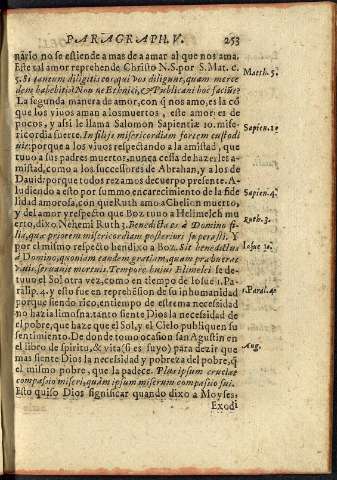 PARAGRAPH. V. 253
nario no se estiende a mas de a amar al que nos ama.
Este tal amor reprehende Christo N.S. por S. Mat. c.
5. Si tantum diligitis eos, qui vos diligunt, quam merce
dem habebitis? Non ne Ethnici, & Publicani hoc faciũt?
Matth. 5.
La segunda manera de amor, con q̃ nos amo, es la có
que los viuos aman a los muertos, este amor es de
pocos, y assi le llama Salomon Sapientiæ 10. mise-
ricordia fuerte. In filijs misericordiam fortem custodi
Sapien. 10
uit: porque a los viuos respectando a la amistad, que
tuuo a sus padres muertos, nunca cessa de hazerles a-
mistad, como a los successores de Abrahan, y a los de
Dauid: porque todos rezamos de cuerpo presente. A-
ludiendo a esto por summo encarecimiento de la fide
Sapien. 4.
lidad amorosa, con que Ruth amo a Chelion muerto,
y del amor y respecto que Boz tuuo a Helimelch mu
erto, dixo, Nehemi Ruth 3. Benedicta es à Domino fi-
Ruth. 3.
lia, quæ priorem misericordiam posteriori superasti. Y
por el mismo respecto bendixo a Boz. Sit benedictus
Iosue 10.
à Domino, quoniam eandem gratiam, quam præbuerat
viuis, seruauit mortuis. Tempore huius Elimelei se de-
tuuo el Sol otra vez, como en tiempo de Iosue 1. Pa-
ralip. 4. y esto fue en reprehẽsion de su inhumanidad
1. Paral. 4.
porque siendo rico, en tiempo de estrema necessidad
no hazia limosna: tanto siente Dios la necessidad de
el pobre, que haze que el Sol, y el Cielo publiquen su
sentimiento. De donde tomo ocasion san Agustin en
el libro de spiritu, & vita (si es suyo) para dezir que
Aug.
mas siente Dios la necessidad y pobreza del pobre, q̃
el mismo pobre, que la padece. Plus ipsum cruciat
compassio miseri, quàm ipsum miserum compassio sui.
Esto quiso Dios significar quando dixo a Moyses:
Exodi